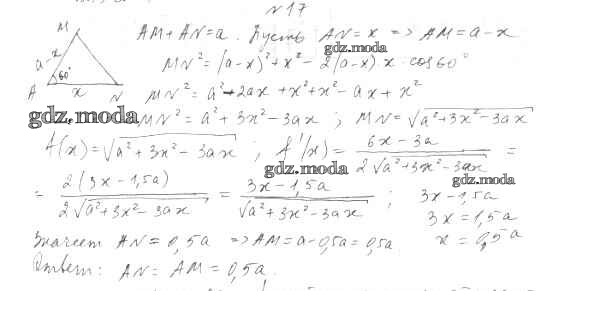 №17
M
a-x
60°
A x N
AM + AN = a. Пусть AN = x => AM = a - x
gdz.moda
MN² = (a-x)² + x² - 2(a-x)·x·cos60°
MN² = a² - 2ax + x² + x² - ax + x²
gdz.moda
MN² = a² + 3x² - 3ax ; MN = √(a² + 3x² - 3ax)
f(x) = √(a² + 3x² - 3ax) ; f'(x) = (6x - 3a) / (2√(a² + 3x² - 3ax)) =
gdz.moda
gdz.moda
= 2(3x - 1,5a) / (2√(a² + 3x² - 3ax)) = (3x - 1,5a) / √(a² + 3x² - 3ax) ; 3x - 1,5a
3x = 1,5a
x = 0,5a
Значит AN = 0,5a => AM = a - 0,5a = 0,5a.
Ответ: AN = AM = 0,5a.